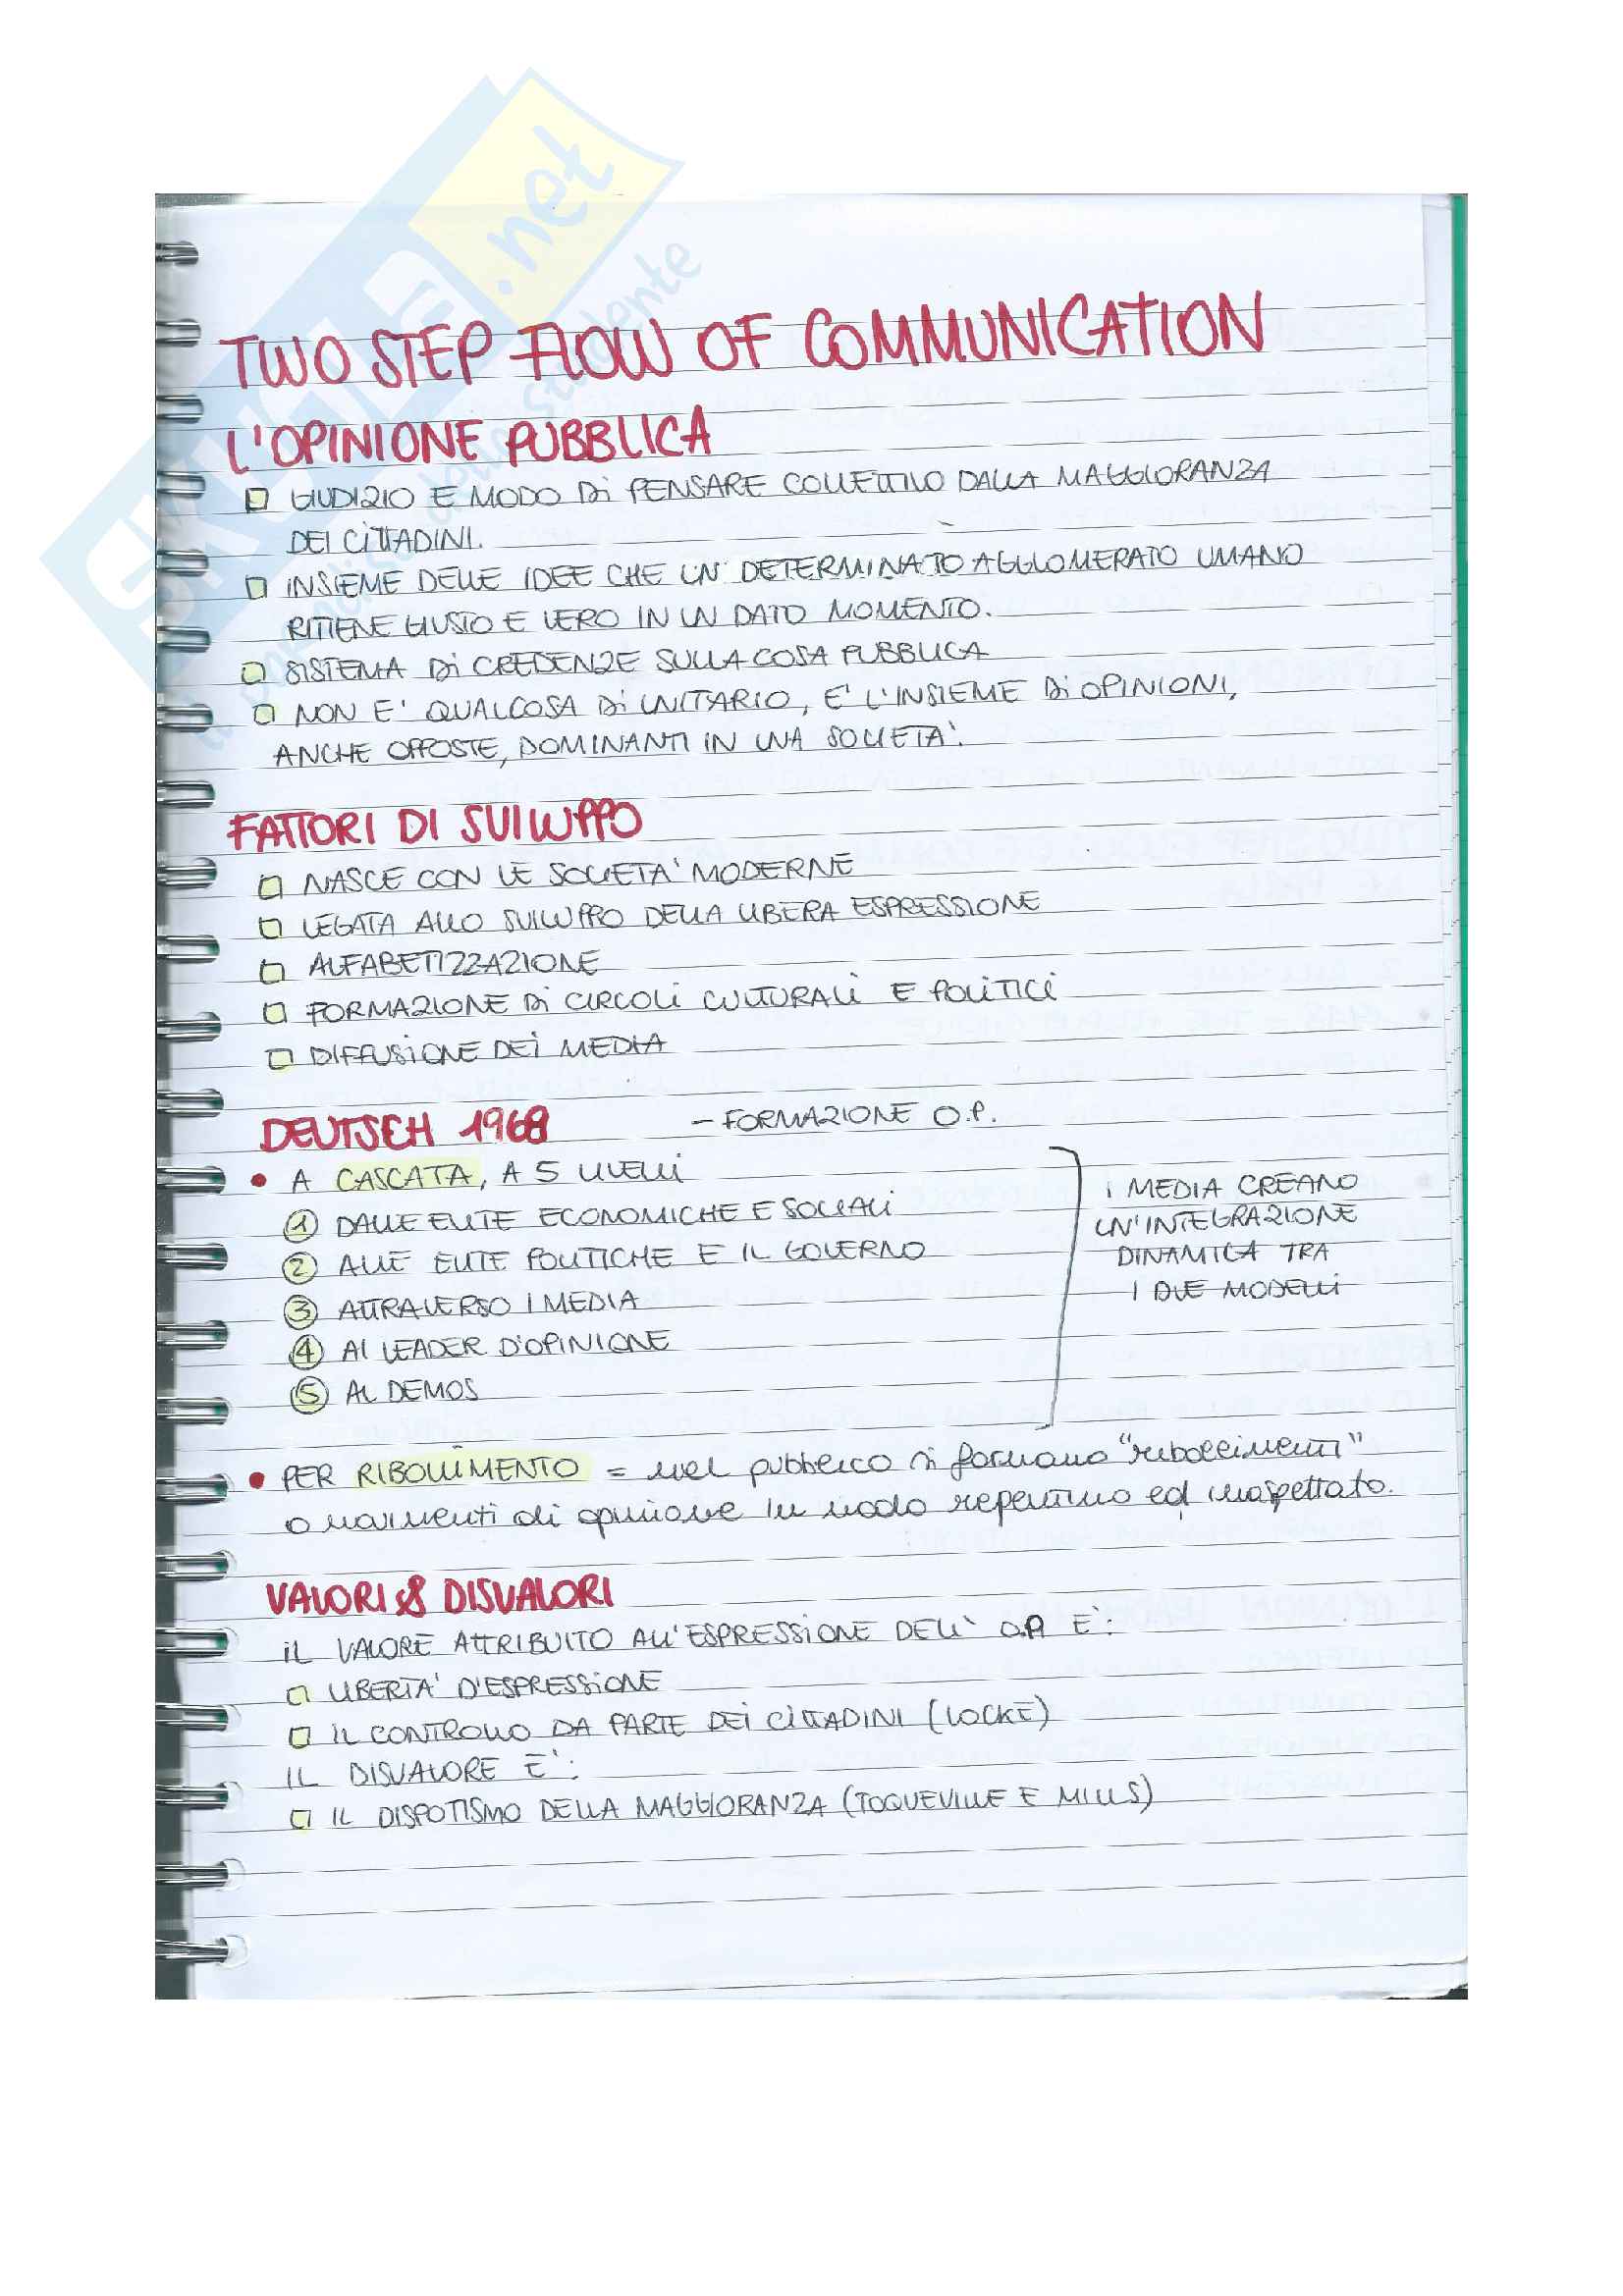 SKUOLA.net
il paradiso dello studente
TWO STEP FLOW OF COMMUNICATION
L'OPINIONE PUBBLICA
GIUDIZIO E MODO Di PENSARE COLLETTIVO DALLA MAGGIORANZA
DEI CITTADINI.
INSIEME DELLE IDEE CHE UN DETERMINATO AGGLOMERATO UMANO
RITIENE GIUSTO E VERO IN UN DATO MOMENTO.
SISTEMA Di CREDENZE SULLA COSA PUBBLICA
NON E' QUALCOSA Di UNITARIO, E' L'INSIEME Di OPINIONI,
ANCHE OPPOSTE, DOMINANTI IN UNA SOCIETA'.
FATTORI DI SVILUPPO
NASCE CON LE SOCIETA' MODERNE
LEGATA ALLO SVILUPPO DELLA LIBERA ESPRESSIONE
ALFABETIZZAZIONE
FORMAZIONE Di CIRCOLI CULTURALI E POLITICI
DIFFUSIONE DEI MEDIA
DEUTSCH 1968 – FORMAZIONE O.P.
• A CASCATA, A 5 LIVELLI
① DALLE ELITE ECONOMICHE E SOCIALI
② ALLE ELITE POLITICHE E IL GOVERNO
③ ATTRAVERSO I MEDIA
④ AI LEADER D'OPINIONE
⑤ AL DEMOS
I MEDIA CREANO
UN'INTEGRAZIONE
DINAMICA TRA
I DUE MODELLI
• PER RIBOLLIMENTO = nel pubblico si formano "ribollimenti"
o movimenti di opinione in modo repentino ed inaspettato.
VALORI & DISVALORI
IL VALORE ATTRIBUITO ALL'ESPRESSIONE DELL' O.P. E':
LIBERTA' D'ESPRESSIONE
IL CONTROLLO DA PARTE DEI CITTADINI (LOCKE)
IL DISVALORE E':
IL DISPOTISMO DELLA MAGGIORANZA (TOQUEVILLE E MILLS)